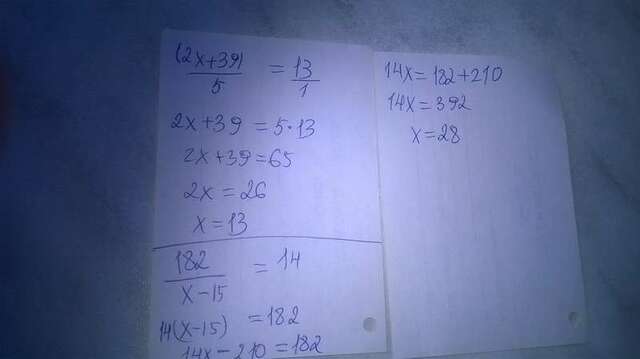 (2x+39)/5 = 13/1
2x+39 = 5·13
2x+39=65
2x = 26
x = 13
182/(x-15) = 14
14(x-15) = 182
14x-210 = 182
14x = 182+210
14x = 392
x = 28